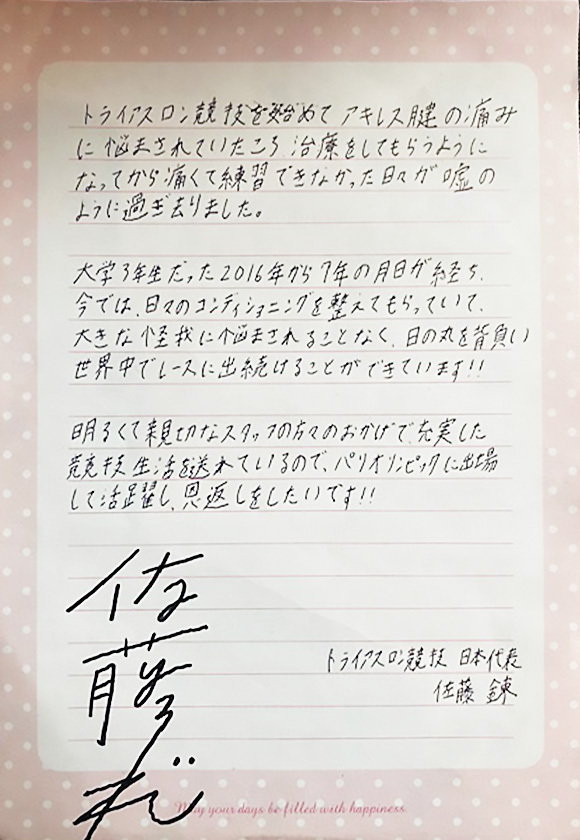 トライアスロン競技を始めて アキレス腱の痛み
に悩まされていたころ 治療をしてもらうように
なってから痛くて練習できなかった日々が嘘の
ように過ぎ去りました。
大学3年生だった2016年から7年の月日が経ち、
今では、日々のコンディショニングを整えてもらっていて、
大きな怪我に悩まされることなく、日の丸を背負い
世界中でレースに出続けることができています!!
明るくて親切なスタッフの方々のおかげで、充実した
競技生活を送れているので、パリオリンピックに出場
して活躍し、恩返しをしたいです!!
トライアスロン競技 日本代表
佐藤 錬
佐藤
May your days be filled with happiness.